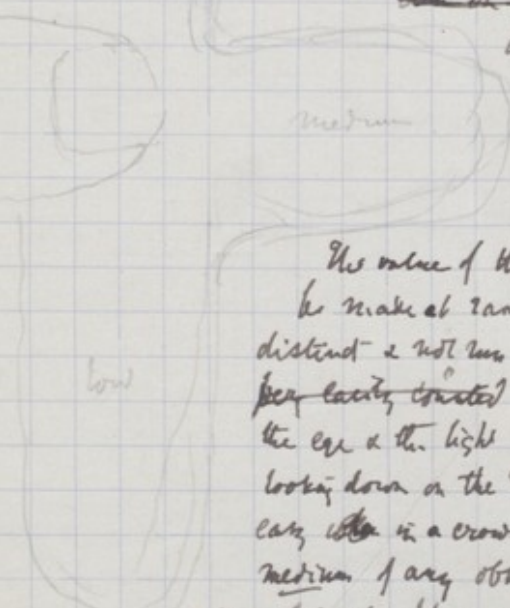 medium
The value of th
be made at ran
distinct & not
very easily counted
low
the eye & the light
looking down on the
easy in a crow
medium of any obs